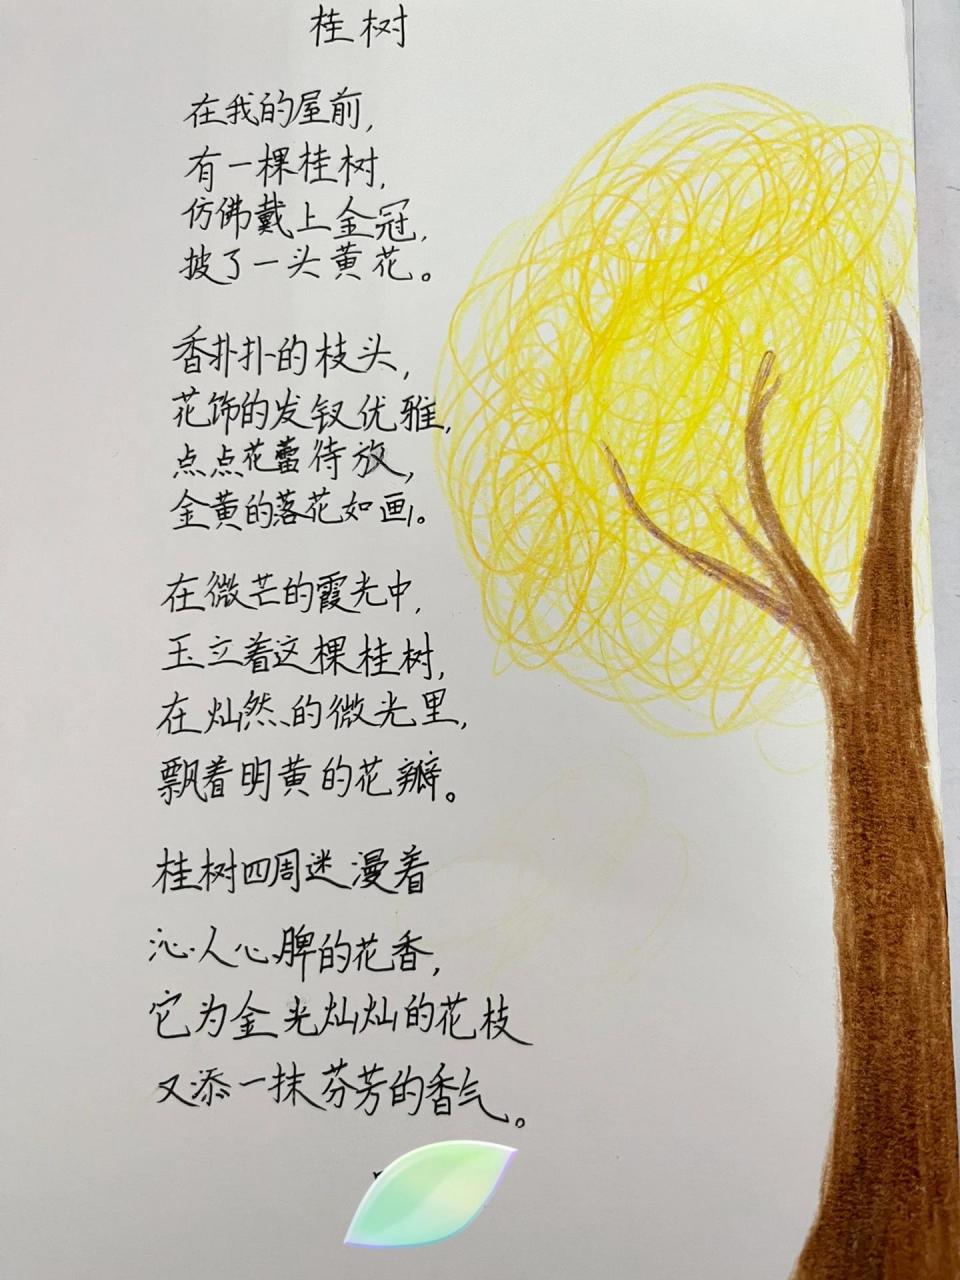 桂树
在我的屋前,
有一棵桂树,
仿佛戴上金冠,
披了一头黄花。
香扑扑的枝头,
花饰的发钗优雅,
点点花蕾待放,
金黄的落花如画。
在微芒的霞光中,
玉立着这棵桂树,
在灿然的微光里,
飘着明黄的花瓣。
桂树四周迷漫着
沁人心脾的花香,
它为金光灿灿的花枝
又添一抹芬芳的香气。